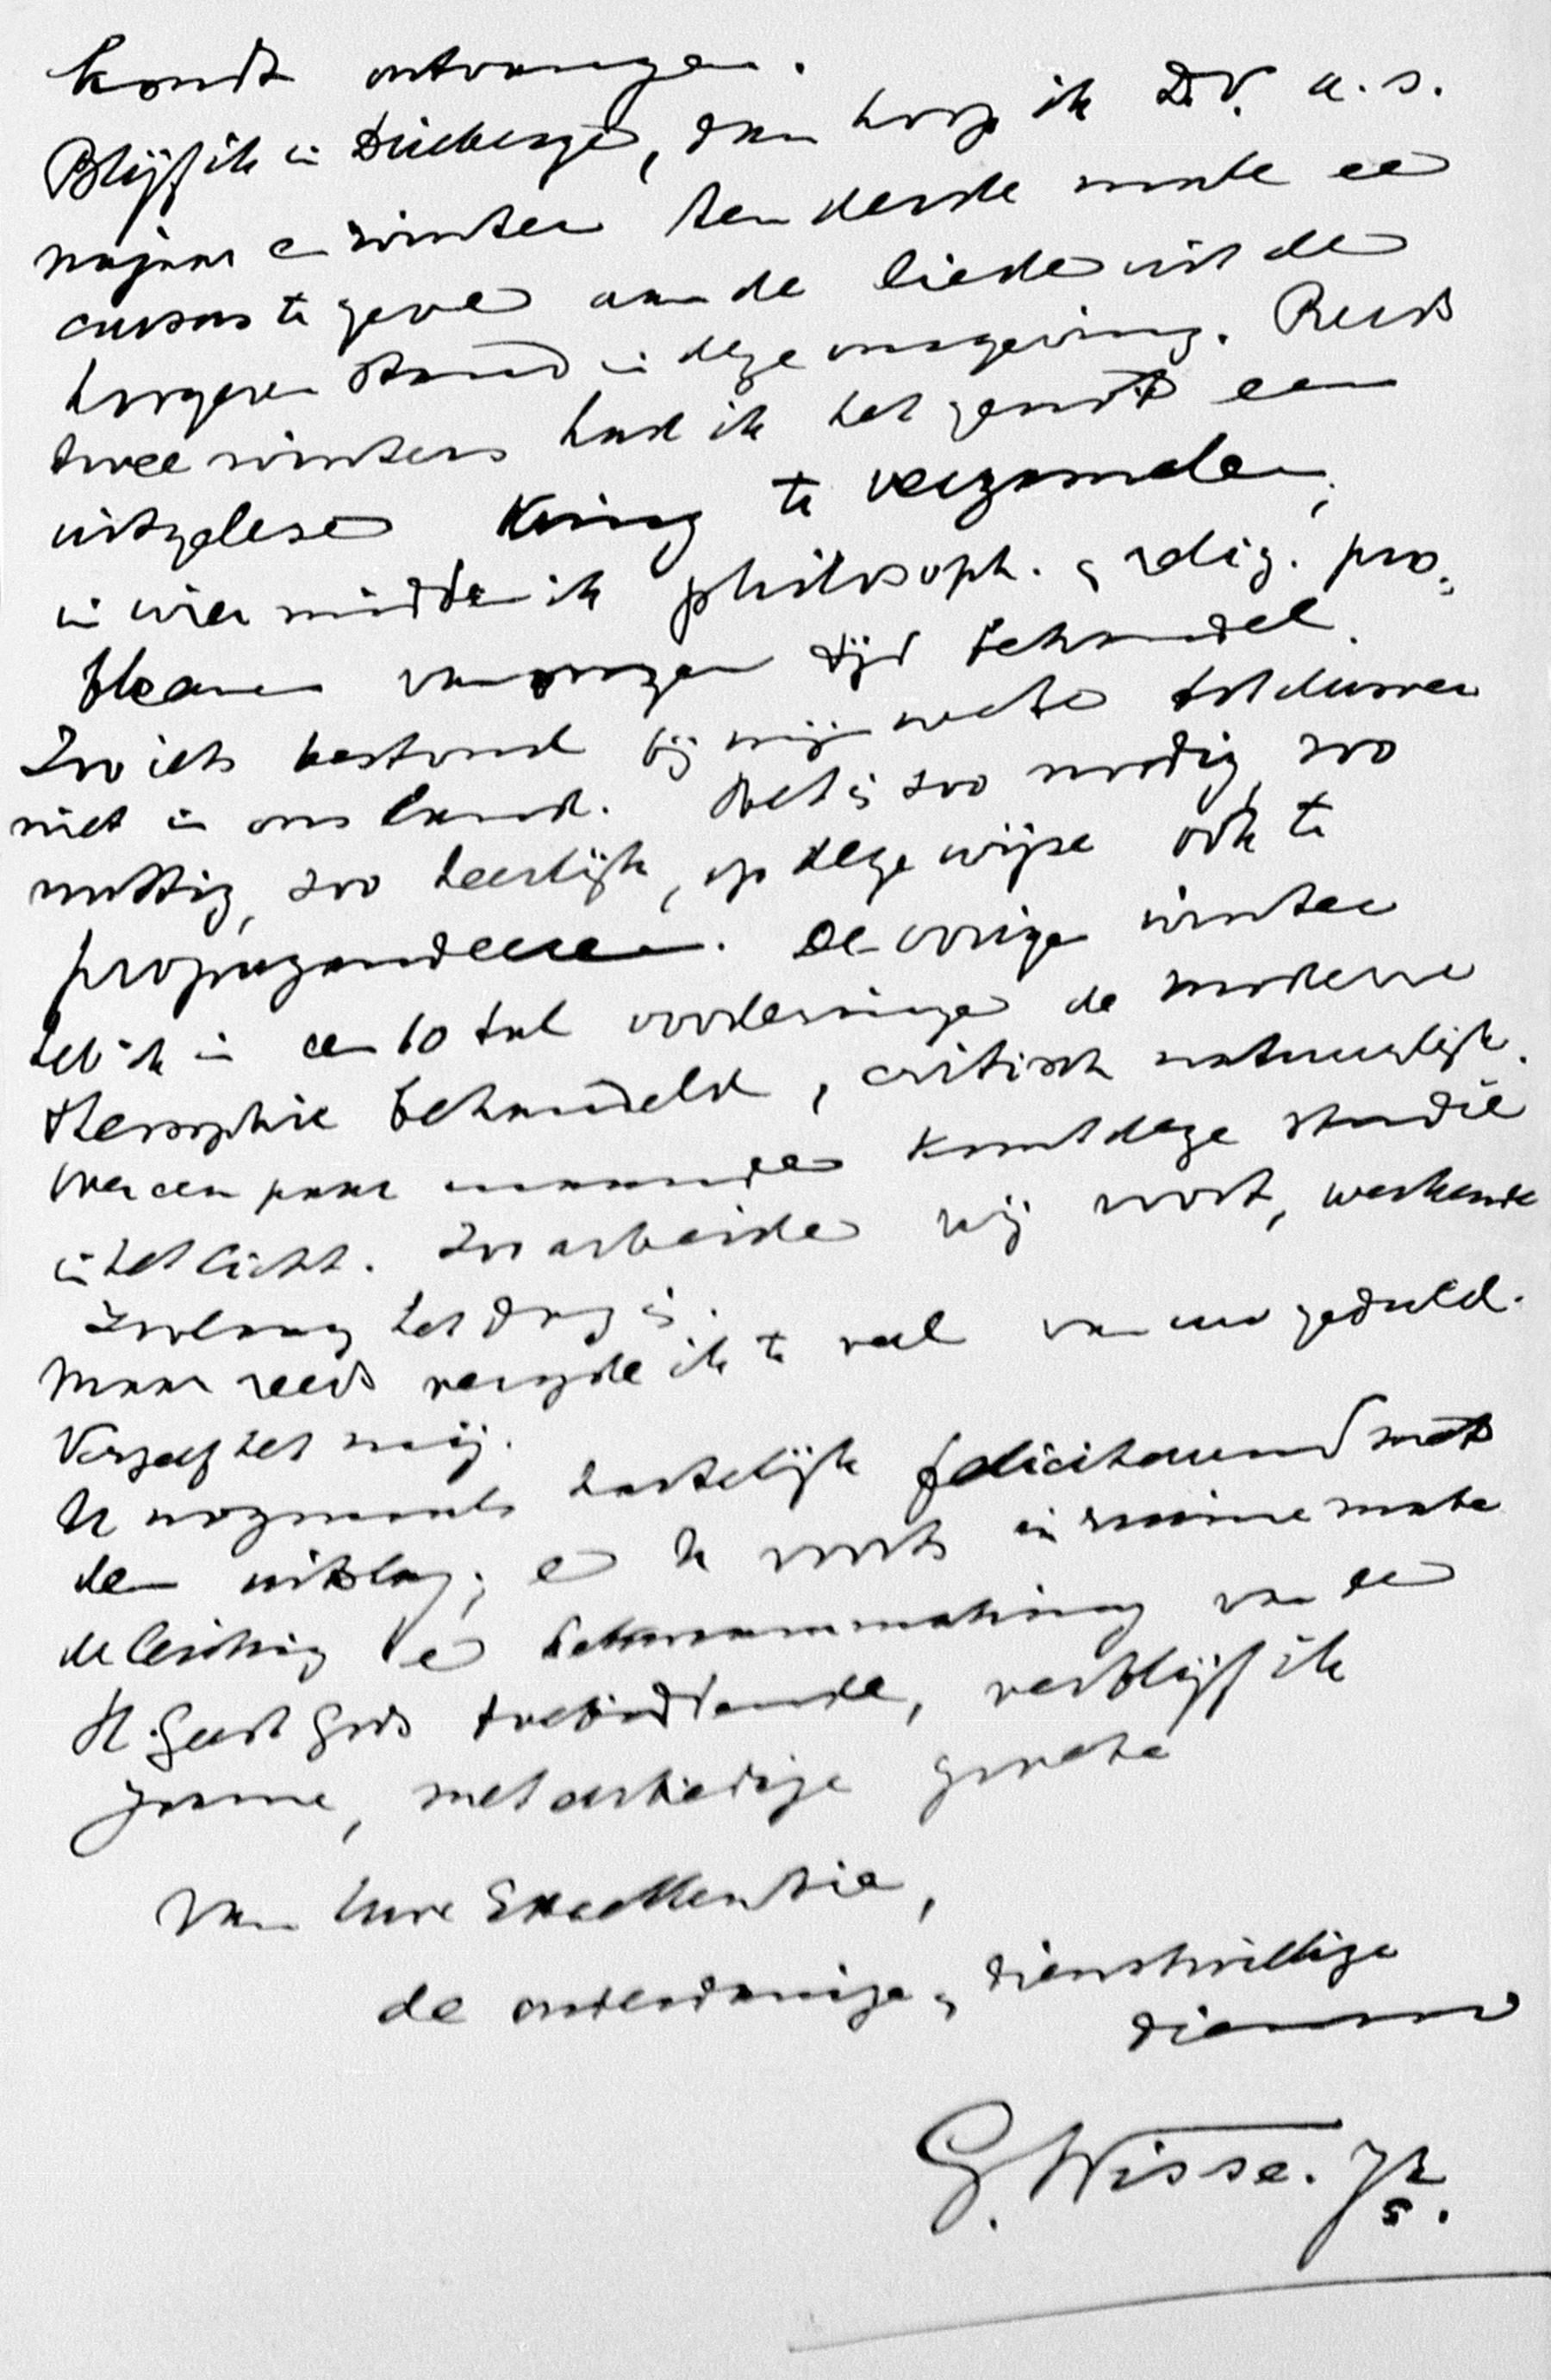 kondt ontvangen.
Blijf ik in Driebergen, dan hoop ik D.V. a.s.
najaar en winter ten derde male een
cursus te geven aan de lieden uit de
hoogeren stand in deze omgeving. Reeds
twee winters had ik het genot een
uitgelezen kring te verzamelen,
in wier midden ik philosoph. & relig. pro-
blemen van onzen tijd behandel.
Zoo iets bestond bij mijn weten tot dusver
niet in ons land. Het is zoo noodig, zoo
nuttig, zoo heerlijk, op deze wijze ook te
propagandeeren. De vorige winter
heb ik in een 10 tal voorlezingen de moderne
theosophie behandeld, critisch natuurlijk.
Over een paar maanden komt deze studie
in het licht. Zoo arbeiden wij voort, werkende
zoolang het dag is.
Maar reeds vergde ik te veel van uw geduld.
Vergeef het mij.
U nogmaals hartelijk feliciteerend met
den uitslag; en U voorts in ruime mate
de leiding en van den
H. Geest Gods toebiddende, verblijf ik
gaarne, met eerbiedige groete
Van Uwe Excellentie,
de onderdanige & dienstwillige
dienaar
G. Wisse. Jz